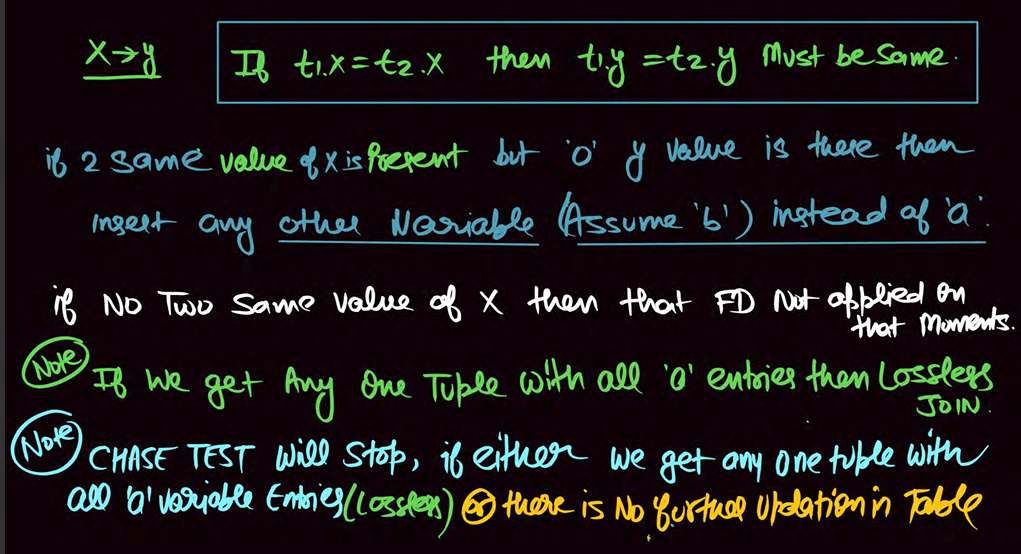 X→y If t1.x = t2.x then t1.y = t2.y Must be same.
if 2 same value of x is Present but '0' y value is there then
insert any other Variable (Assume 'b') instead of 'a'.
if No Two Same Value of X then that FD Not applied on
that Moments.
Note If We get Any One Tuple with all 'a' entries then Lossless
JOIN.
Note CHASE TEST Will Stop, if either we get any one tuple with
all 'a' variable Entries (Lossless) OR there is No further Updation in Table